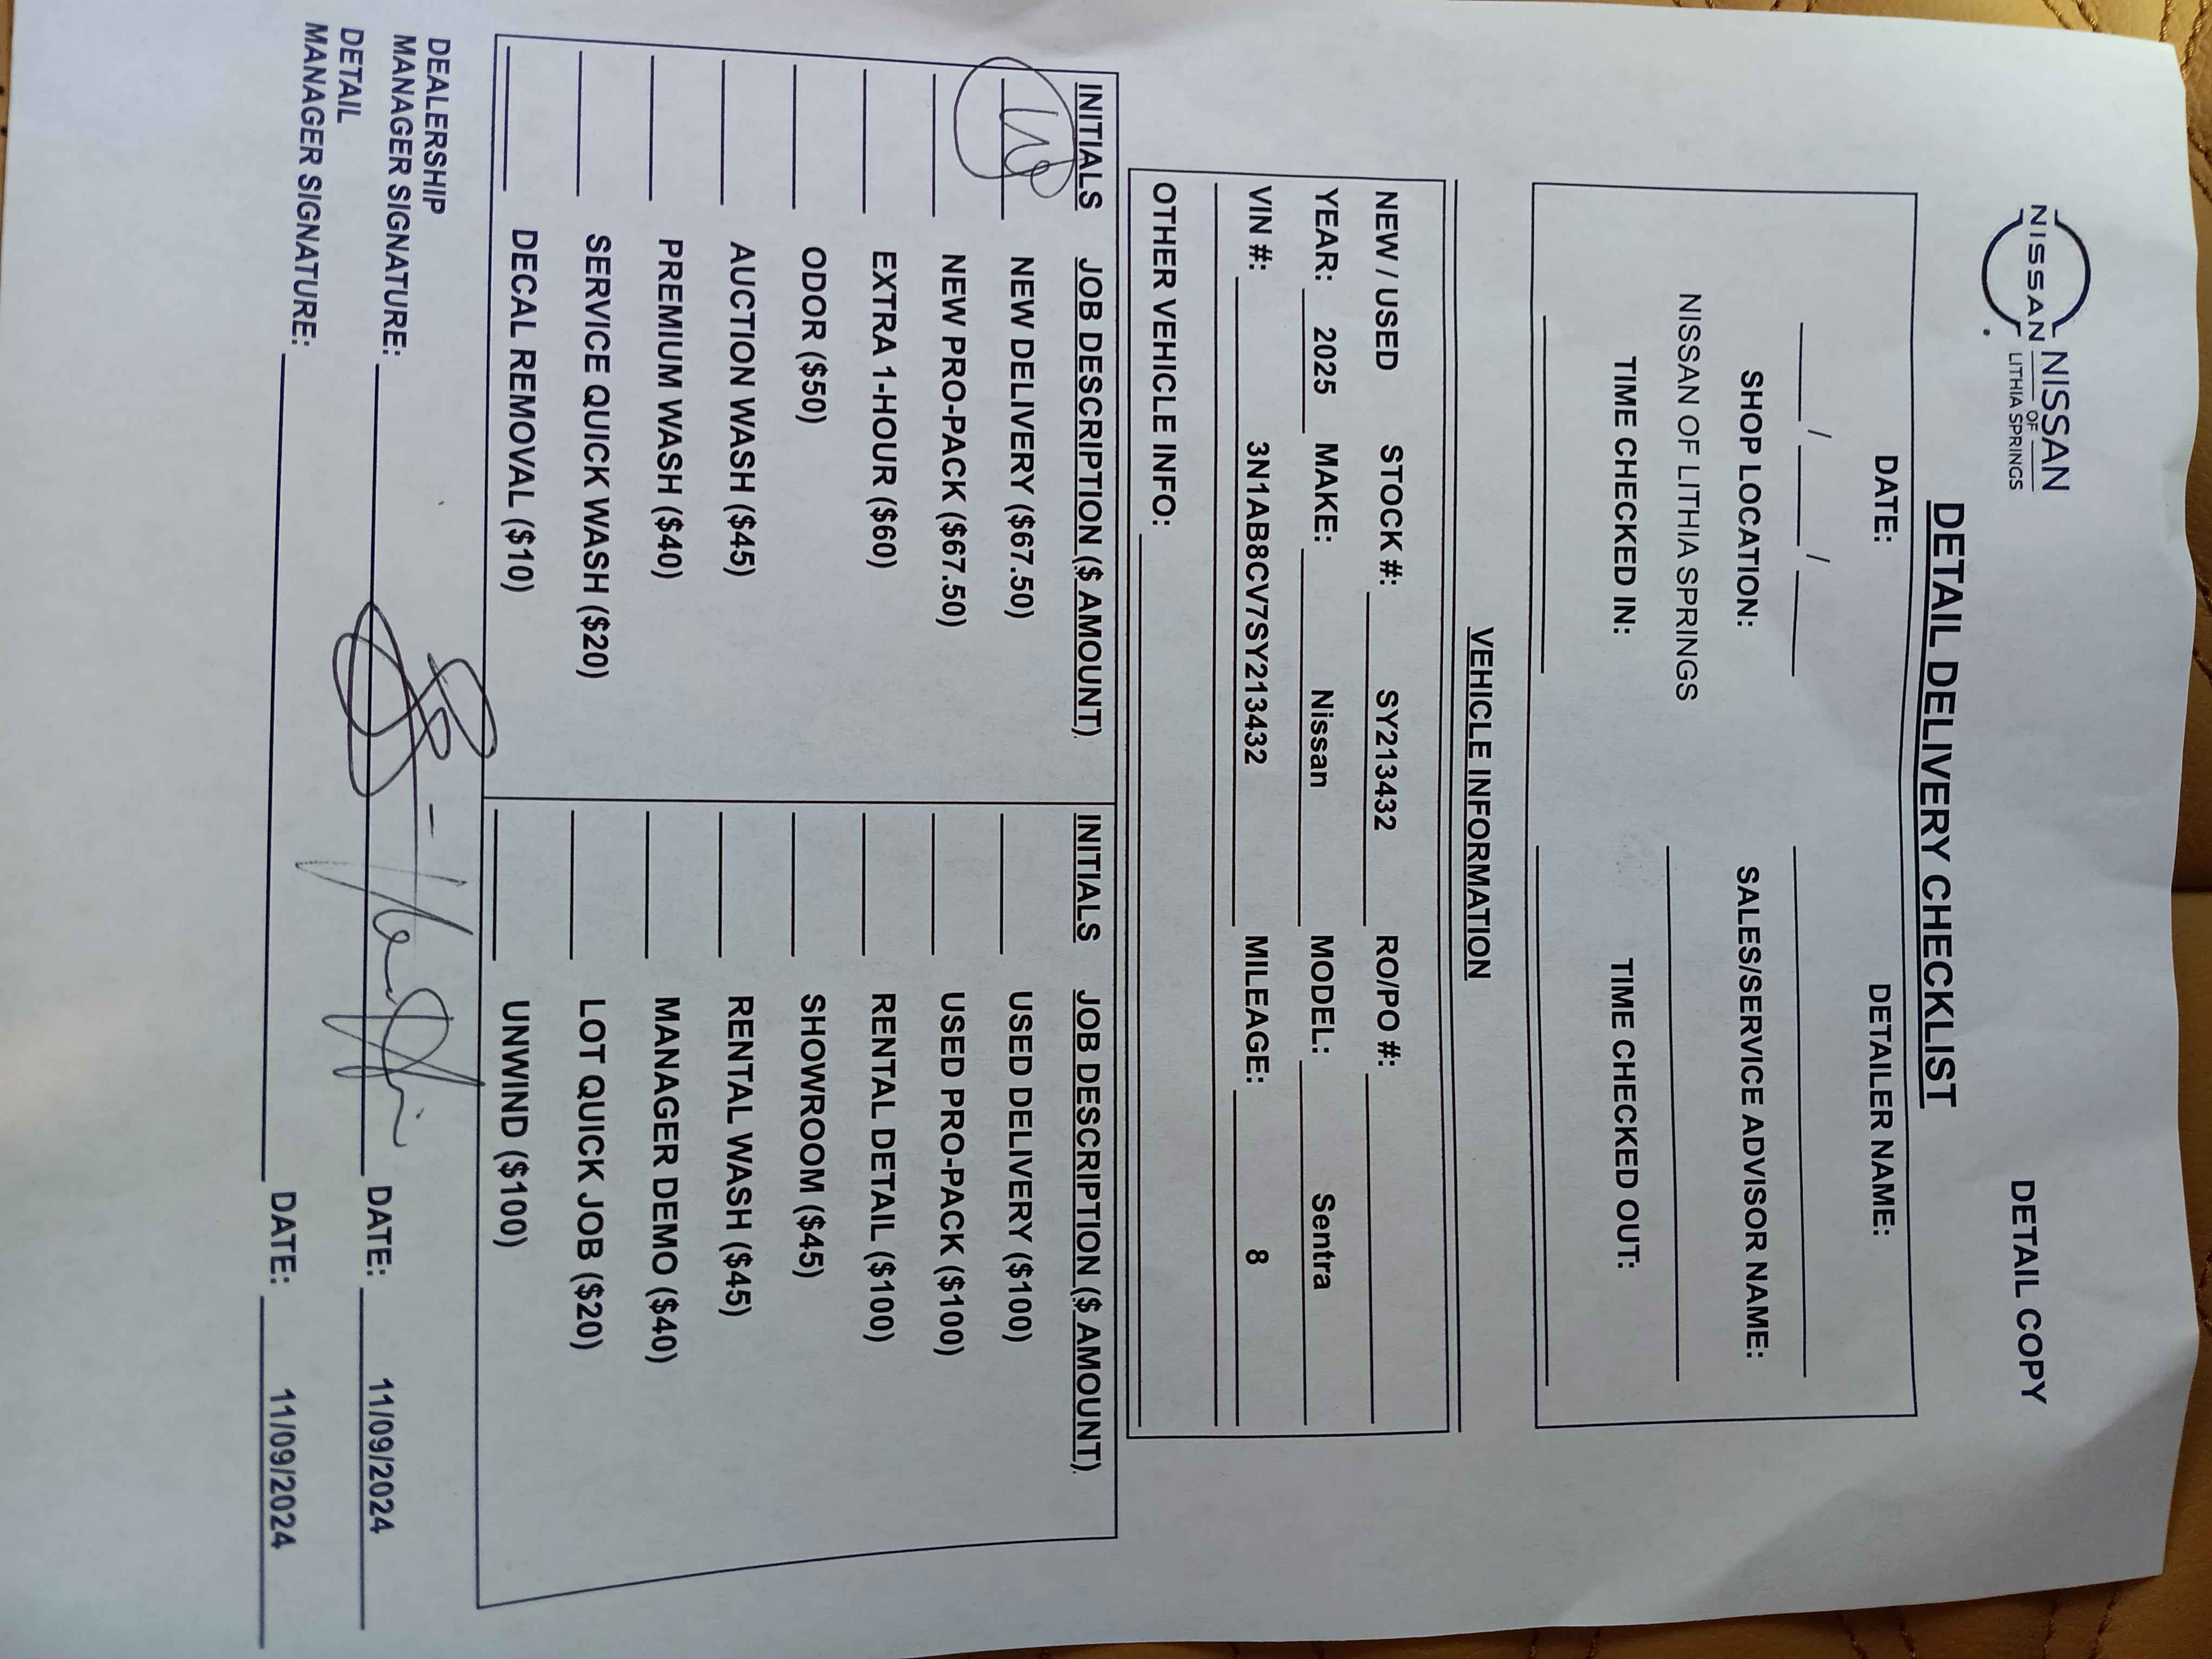 DETAIL COPY
NISSAN
NISSAN
OF
LITHIA SPRINGS
DETAIL DELIVERY CHECKLIST
DATE: DETAILER NAME:
/ /
SHOP LOCATION: SALES/SERVICE ADVISOR NAME:
NISSAN OF LITHIA SPRINGS
TIME CHECKED IN: TIME CHECKED OUT:
VEHICLE INFORMATION
NEW / USED STOCK #: SY213432 RO/PO #:
YEAR: 2025 MAKE: Nissan MODEL: Sentra
VIN #: 3N1AB8CV7SY213432 MILEAGE: 8
OTHER VEHICLE INFO:
INITIALS JOB DESCRIPTION ($ AMOUNT) INITIALS JOB DESCRIPTION ($ AMOUNT)
NEW DELIVERY ($67.50) USED DELIVERY ($100)
NEW PRO-PACK ($67.50) USED PRO-PACK ($100)
EXTRA 1-HOUR ($60) RENTAL DETAIL ($100)
ODOR ($50) SHOWROOM ($45)
AUCTION WASH ($45) RENTAL WASH ($45)
PREMIUM WASH ($40) MANAGER DEMO ($40)
SERVICE QUICK WASH ($20) LOT QUICK JOB ($20)
DECAL REMOVAL ($10) UNWIND ($100)
DEALERSHIP
MANAGER SIGNATURE: DATE: 11/09/2024
DETAIL
MANAGER SIGNATURE: DATE: 11/09/2024